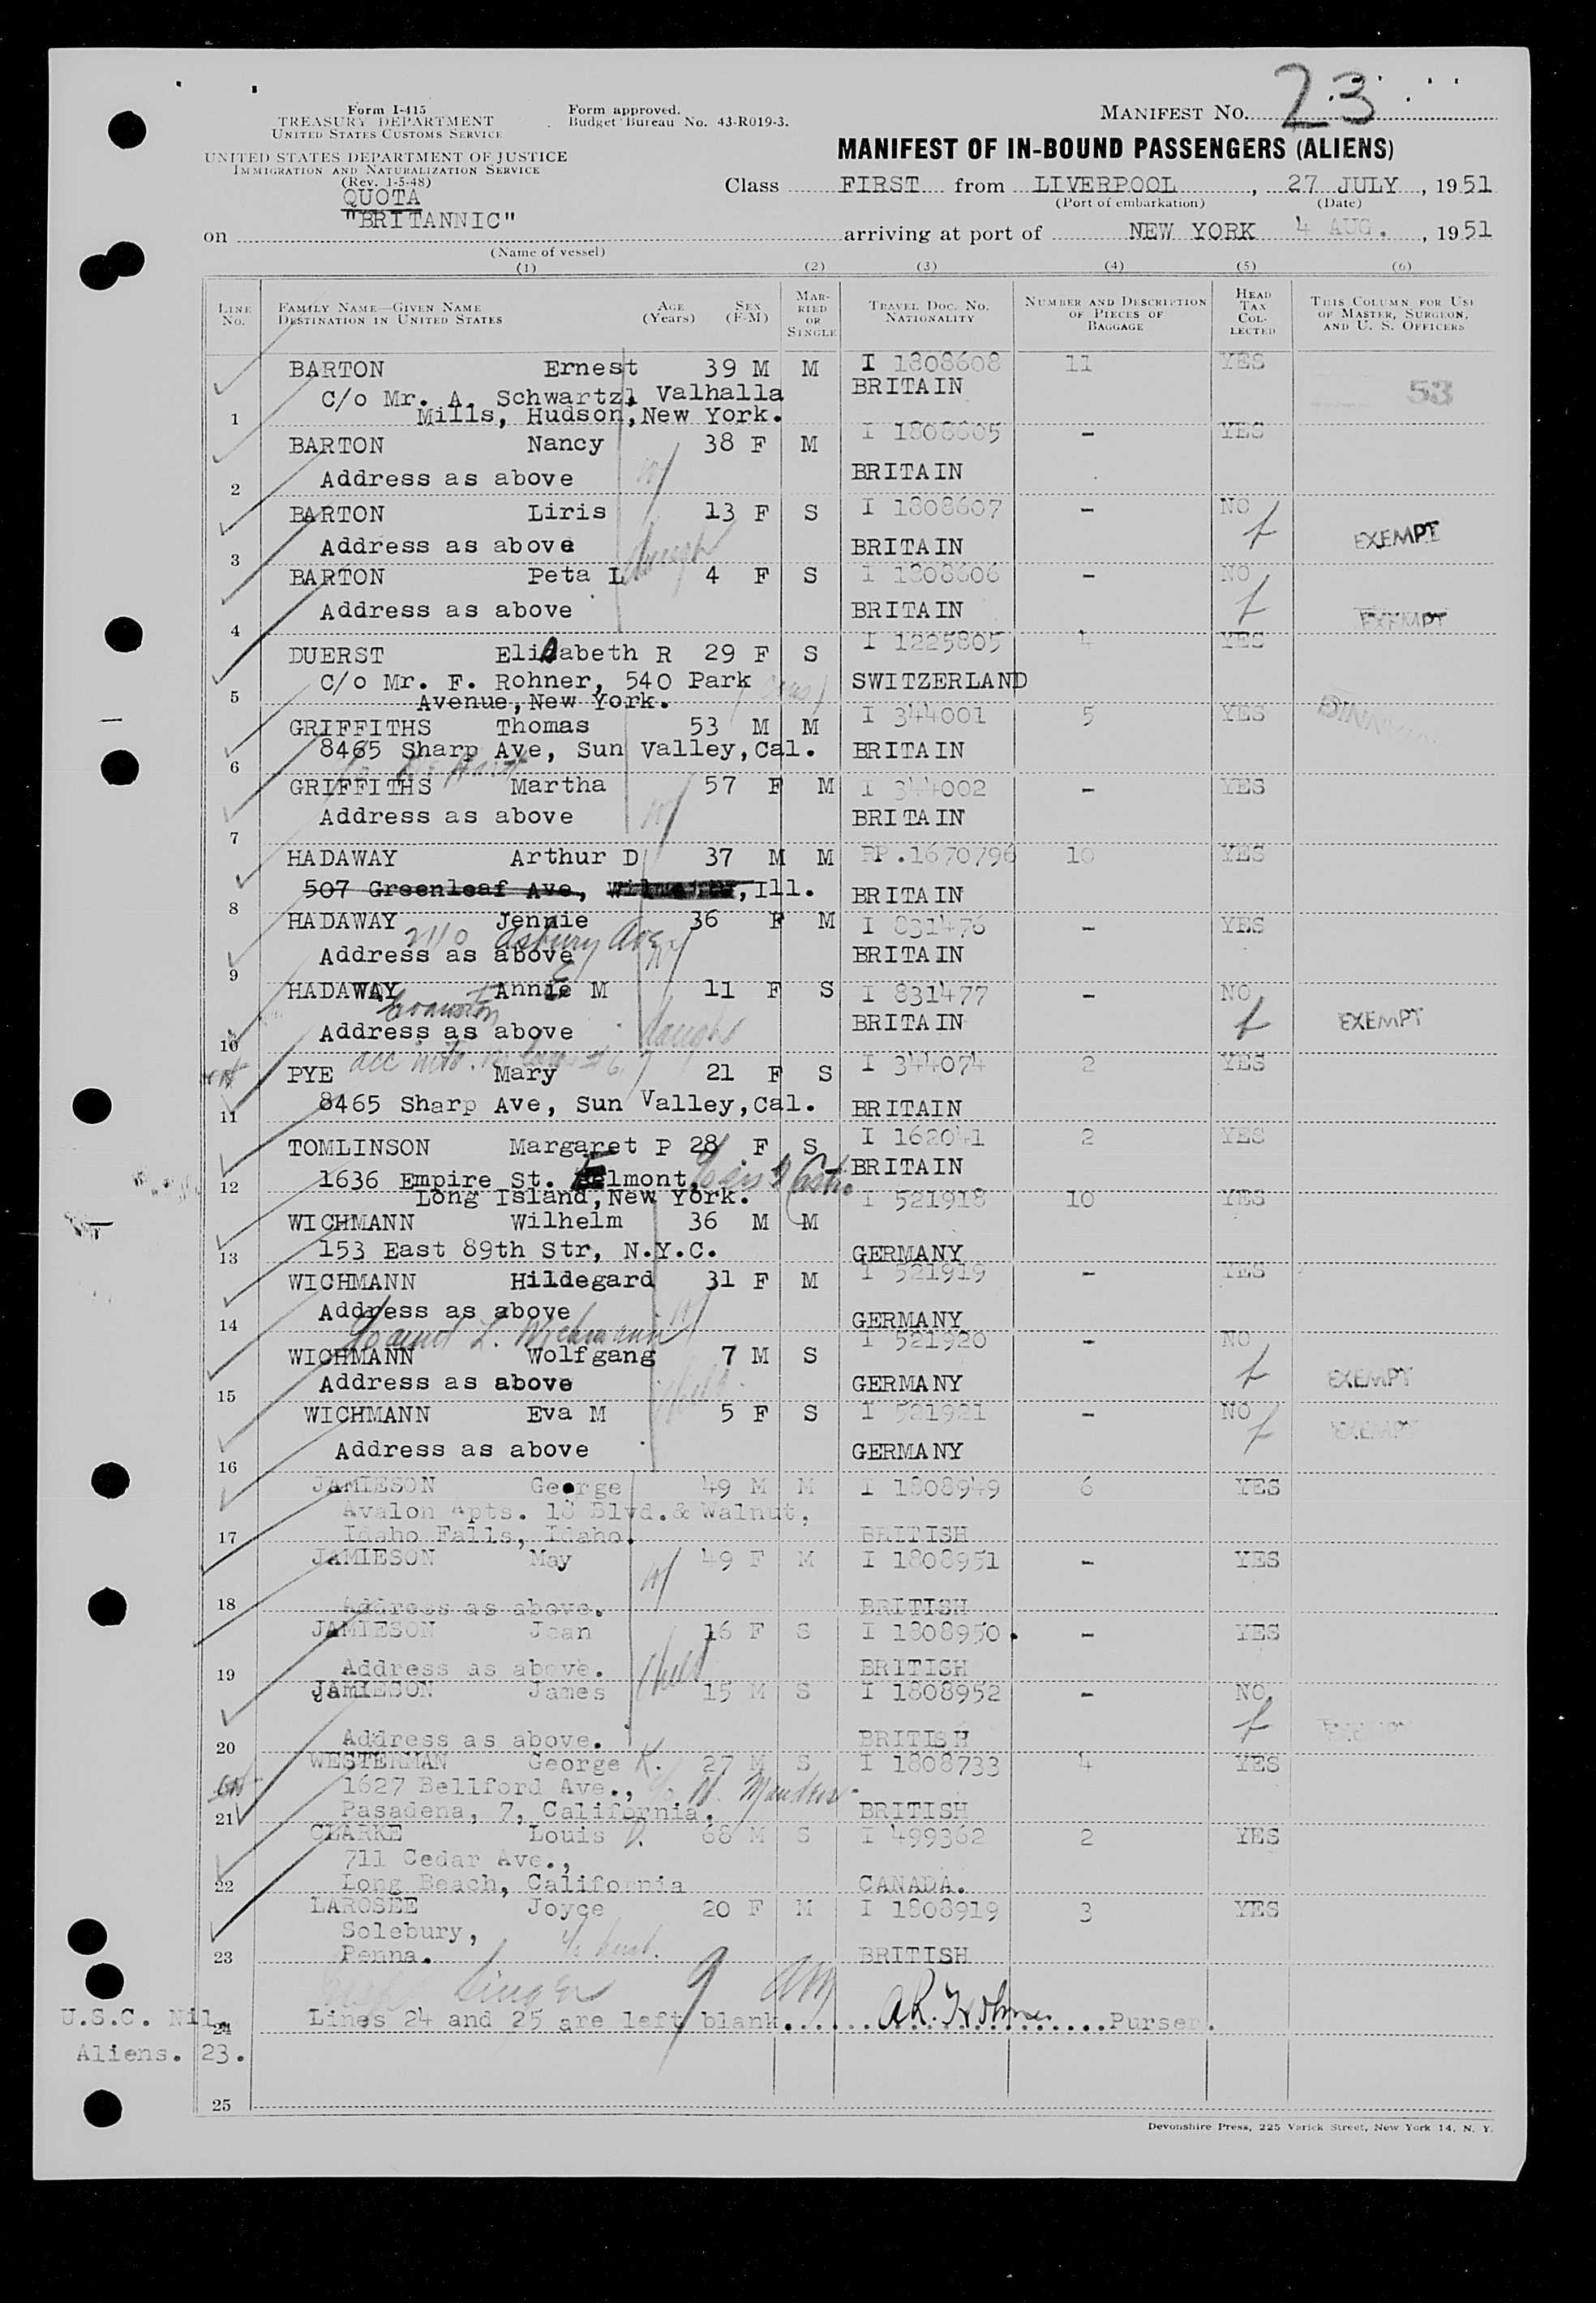 Form I-415
TREASURY DEPARTMENT
UNITED STATES CUSTOMS SERVICE
Form approved.
Budget Bureau No. 43-R019-3.
MANIFEST NO. 23
UNITED STATES DEPARTMENT OF JUSTICE
IMMIGRATION AND NATURALIZATION SERVICE
(Rev. 1-5-48)
MANIFEST OF IN-BOUND PASSENGERS (ALIENS)
Class FIRST from LIVERPOOL, 27 JULY, 1951
(Port of embarkation) (Date)
QUOTA
on "BRITANNIC" arriving at port of NEW YORK 4 AUG., 1951
(Name of vessel)
(1) (2) (3) (4) (5) (6)
LINE No. FAMILY NAME—GIVEN NAME DESTINATION IN UNITED STATES AGE (Years) SEX (F-M) MARRIED OR SINGLE TRAVEL DOC. NO. NATIONALITY NUMBER AND DESCRIPTION OF PIECES OF BAGGAGE HEAD TAX COLLECTED THIS COLUMN FOR USE OF MASTER, SURGEON, AND U. S. OFFICERS
BARTON Ernest 39 M M I 1808608 11 YES
C/o Mr. A. Schwartzl Valhalla BRITAIN 53
1 Mills, Hudson, New York.
BARTON Nancy 38 F M I 1808605 - YES
2 Address as above W/ BRITAIN
BARTON Liris 13 F S I 1808607 - NO
3 Address as above daught BRITAIN EXEMPT
BARTON Peta L 4 F S I 1808606 - NO
4 Address as above BRITAIN EXEMPT
DUERST Elisabeth R 29 F S I 1225805 4 YES
5 C/o Mr. F. Rohner, 540 Park SWITZERLAND
Avenue, New York.
GRIFFITHS Thomas 53 M M I 344001 5 YES
6 8465 Sharp Ave, Sun Valley, Cal. BRITAIN
GRIFFITHS Martha 57 F M I 344002 - YES
7 Address as above W/ BRITAIN
HADAWAY Arthur D 37 M M PP.1670796 10 YES
8 507 Greenleaf Ave, Ill. BRITAIN
HADAWAY Jennie 36 F M I 831476 - YES
2110 Asbury Ave
9 Address as above BRITAIN
HADAWAY Annie M 11 F S I 831477 - NO
Evanston
10 Address as above daught BRITAIN EXEMPT
PYE Mary 21 F S I 344074 2 YES
11 8465 Sharp Ave, Sun Valley, Cal. BRITAIN
TOMLINSON Margaret P 28 F S I 162041 2 YES
12 1636 Empire St. Elmont, BRITAIN
Long Island, New York.
WICHMANN Wilhelm 36 M M I 521918 10 YES
13 153 East 89th Str, N.Y.C. GERMANY
WICHMANN Hildegard 31 F M I 521919 - YES
14 Address as above W/ GERMANY
L. Wichmann
WICHMANN Wolfgang 7 M S I 521920 - NO
15 Address as above GERMANY EXEMPT
WICHMANN Eva M 5 F S I 521921 - NO
16 Address as above GERMANY EXEMPT
JAMIESON George 49 M M I 1808949 6 YES
Avalon Apts. 18 Blvd. & Walnut,
17 Idaho Falls, Idaho. BRITISH
JAMIESON May 49 F M I 1808951 - YES
18 Address as above. W/ BRITISH
JAMIESON Jean 16 F S I 1808950. - YES
19 Address as above. BRITISH
JAMIESON James 15 M S I 1808952 - NO
20 Address as above. BRITISH
WESTERMAN George K. 27 M S I 1808733 4 YES
1627 Bellford Ave.,
21 Pasadena, 7, California. BRITISH
CLARKE Louis D. 68 M S I 499362 2 YES
711 Cedar Ave.,
22 Long Beach, California CANADA.
LAROSEE Joyce 20 F M I 1808919 3 YES
Solebury,
23 Penna. BRITISH
U.S.C. Nil.
24 Lines 24 and 25 are left blank. Purser.
Aliens. 23.
25
Devonshire Press, 225 Varick Street, New York 14, N. Y.